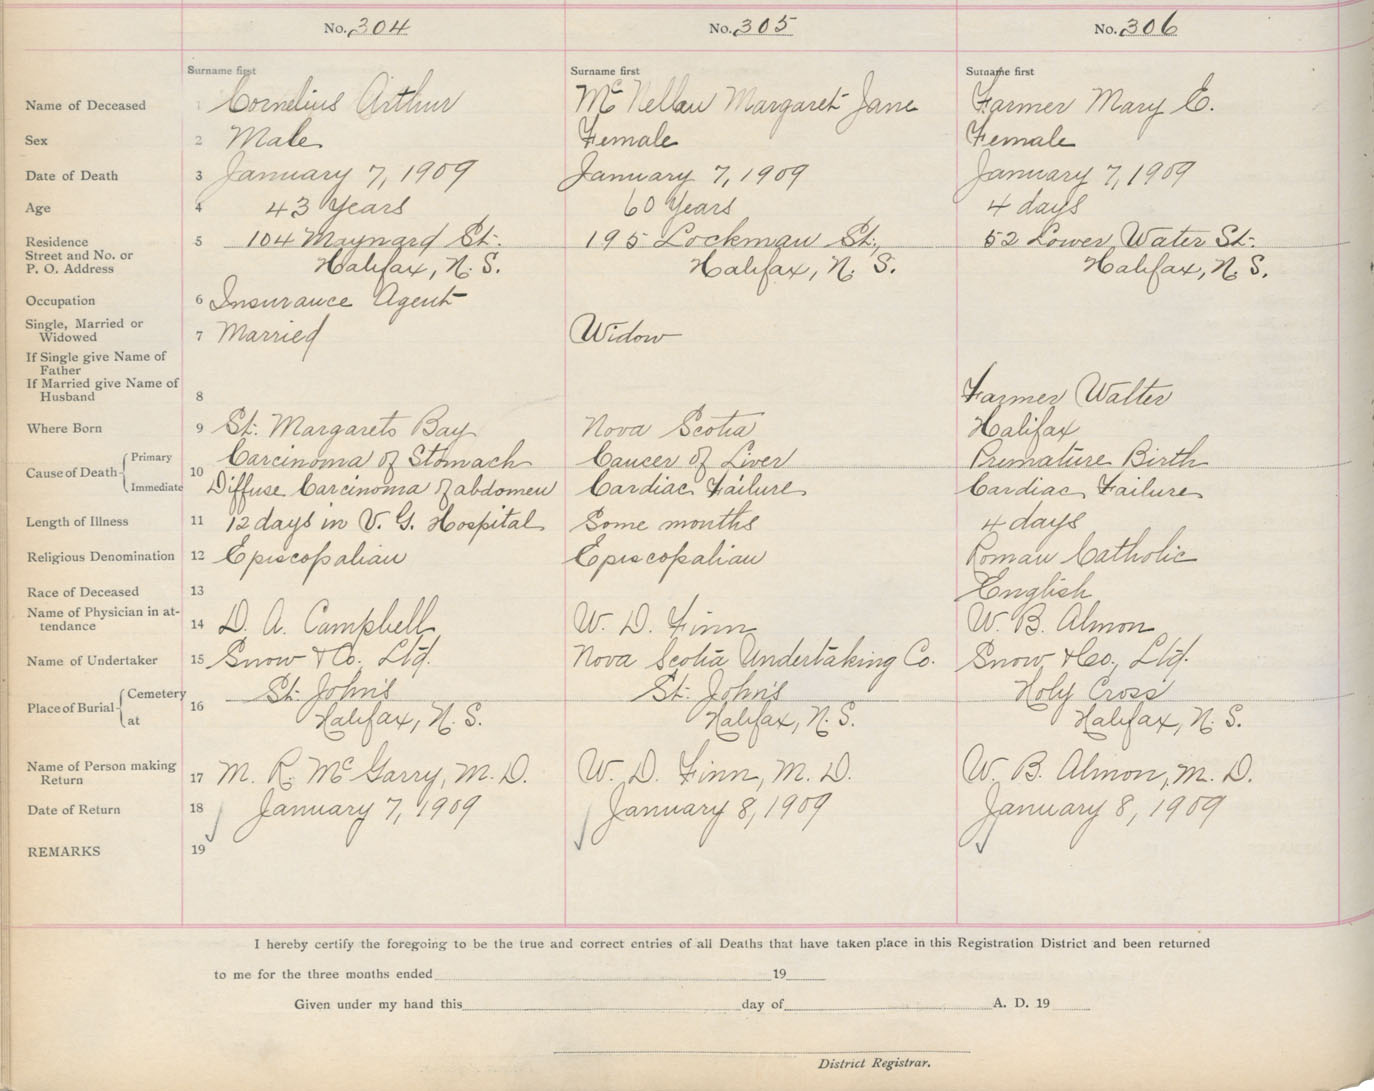 No. 304 No. 305 No. 306
Surname first Surname first Surname first
Name of Deceased 1 Cornelius Arthur McNellan Margaret Jane Farmer Mary E.
Sex 2 Male Female Female
Date of Death 3 January 7, 1909 January 7, 1909 January 7, 1909
Age 4 43 Years 60 Years 4 days
Residence 5 104 Maynard St. 195 Lockman St., 52 Lower Water St.
Street and No. or
P. O. Address Halifax, N. S. Halifax, N. S. Halifax, N. S.
Occupation 6 Insurance Agent
Single, Married or
Widowed 7 Married Widow
If Single give Name of
Father
If Married give Name of
Husband 8 Farmer Walter
Where Born 9 St. Margarets Bay Nova Scotia Halifax
Cause of Death Primary 10 Carcinoma of Stomach Cancer of Liver Premature Birth
Immediate Diffuse Carcinoma of abdomen Cardiac Failure Cardiac Failure
Length of Illness 11 12 days in V. G. Hospital Some months 4 days
Religious Denomination 12 Episcopalian Episcopalian Roman Catholic
Race of Deceased 13 English
Name of Physician in at-
tendance 14 D. A. Campbell W. D. Finn W. B. Almon
Name of Undertaker 15 Snow & Co., Ltd. Nova Scotia Undertaking Co. Snow & Co., Ltd.
Place of Burial Cemetery 16 St. John's St. John's Holy Cross
at Halifax, N. S. Halifax, N. S. Halifax, N. S.
Name of Person making
Return 17 M. R. McGarry, M. D. W. D. Finn, M. D. W. B. Almon, M. D.
Date of Return 18 January 7, 1909 January 8, 1909 January 8, 1909
REMARKS 19
I hereby certify the foregoing to be the true and correct entries of all Deaths that have taken place in this Registration District and been returned
to me for the three months ended 19
Given under my hand this day of A. D. 19
District Registrar.